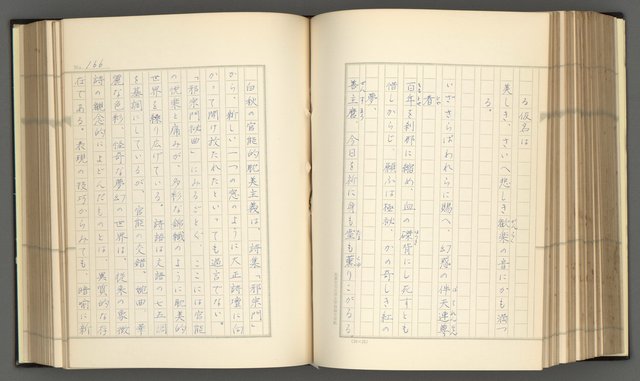 る仮名は
美しき、さいへ悲しき歓楽の音にかも満つ
る。
いざさらばわれらに賜へ、幻惑の伴天連尊
者、
百年を刹那に縮め、血の磔脊にし死すとも
惜しからじ、願ふは極秘、かの奇しき紅の
夢、
善主麿、今日を祈に身も霊も薫りこがるる
No. 166
白秋の官能的耽美主義は、詩集「邪宗門」
から、新しい一つの窓のように大正詩壇に向
かって開け放たれたといっても過言でない。
「邪宗門秘曲」にみるごとく、ここには官能
の悦楽と痛みが、多彩な錦織のように耽美的
世界を繰り広げている。詩語は文語の七五調
を基調にしているが、官能の交錯、婉曲、華
麗な色彩、怪奇な夢幻の世界は、従来の象徴
詩の観念的によどんだものとは、異質的な存
在である。表現の技巧からみても、暗喩に新